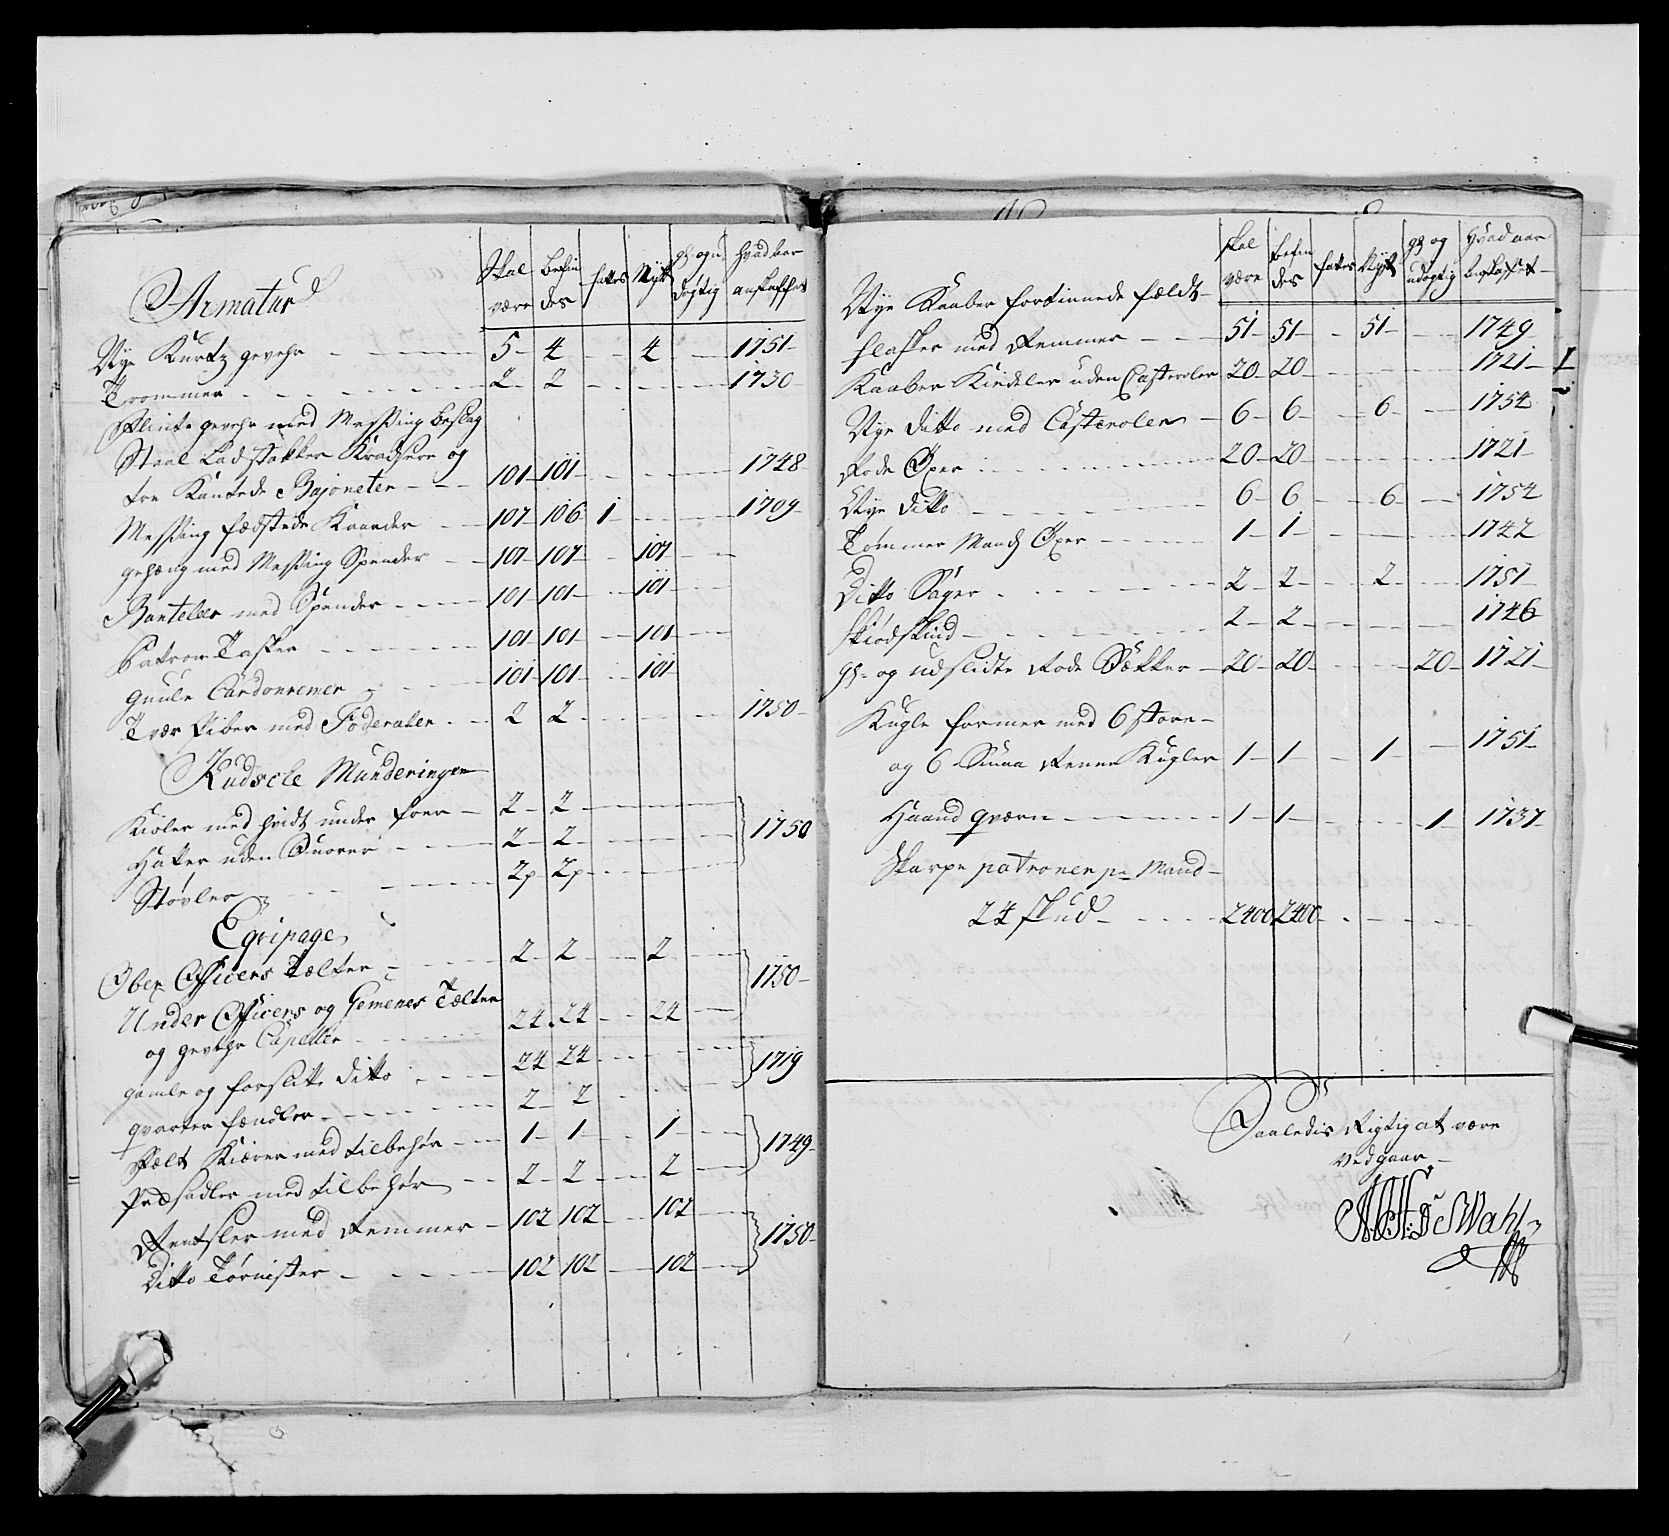 Armatur
Skal være | befin des | fattes | Nyt | gl: og u døgtig | Hvad aar anskaffet
Nye Kurtz gevehr 5 4 4 1751
Trommer 2 2 1730
Flinte gevehr med Messing beslag
Staal Ladstokker Kradsere og
tre Kantede Bajoneter 101 101 1748
Messing fæstede Kaarder 107 106 1 1709
gehæng med Messing Spender 107 107 107
Banteleer med Spender 101 101 101
Patron Tasker 101 101 101
guule Cardonremer 101 101 101
Tvær Piber med Foderaler 2 2 1750
Kudscke Munderingen
Kioler med hvidt under foer 2 2
Hatter uden Snorer 2 2 1750
Støvler 2p 2p
Eqvipage
Ober Officers Tælter 2 2 2
Under Officers og Gemenes Tælter 1750
og gevehr Capeller 24 24 24
gamle og forslitte ditto 24 24 1719
qvarteer fændler 2 2
Fælt Kiærer med tilbehør 1 1 1 1749
Pachsadler med tilbehør 2 2 2
Rentsler med Remmer 102 102 102 1750
ditto Tørnister 102 102 102
Skal være | befin des | fattes | Nyt | gl: og udøgtig | Hvad aar anskaffet
Nye Kaaber fortinnede fældt
flasker med Remmer 51 51 51 1749
Kaaber Kiedeler uden Casteroler 20 20 1721
Nye ditto med Casteroler 6 6 6 1754
Rode Øxer 20 20 1721
Nye ditto 6 6 6 1754
Tømmer Mands Øxer 1 1 1742
Ditto Sager 2 2 2 1751
Skiødskind 2 2 1746
gl: og udslidte Rode Sækker 20 20 20 1721
Kugle former med 6 store
og 6 Smaa Rene Kugler 1 1 1 1751
Haand qværn 1 1 1 1737
Skarpe patroner pr Mand
24 skud 2400 2400
Saaledis Rigtig at være
vedgaar
De Wahl